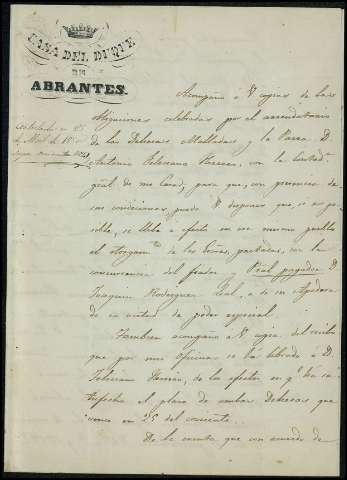 CASA DEL DUQUE
DE
ABRANTES.
Acompaño á V. copias de las
obligaciones celebradas por el arrendatario
de las Dehesas Malladas y la Parra D.
Antonio Feliciano con la
gral. de mi Casa, para que, con presencia de
sus condiciones, pueda V. disponer que, si es po-
sible, se lleve á efecto en ese mismo pueblo
el otorgamto. de las pactadas, con la
concurrencia del fiador y Real pagador D.
Joaquin Rodriguez Leal, ó de su Apoderado
en virtud de poder especial.
Tambien acompaño á V. copia del recibo
que por mis Oficinas se ha librado á D.
Feliciano de los efectos en qe. ha sa-
tisfecho el plazo de ambas Dehesas que
vence en 25 del corriente.
De la cuenta que con acuerdo de